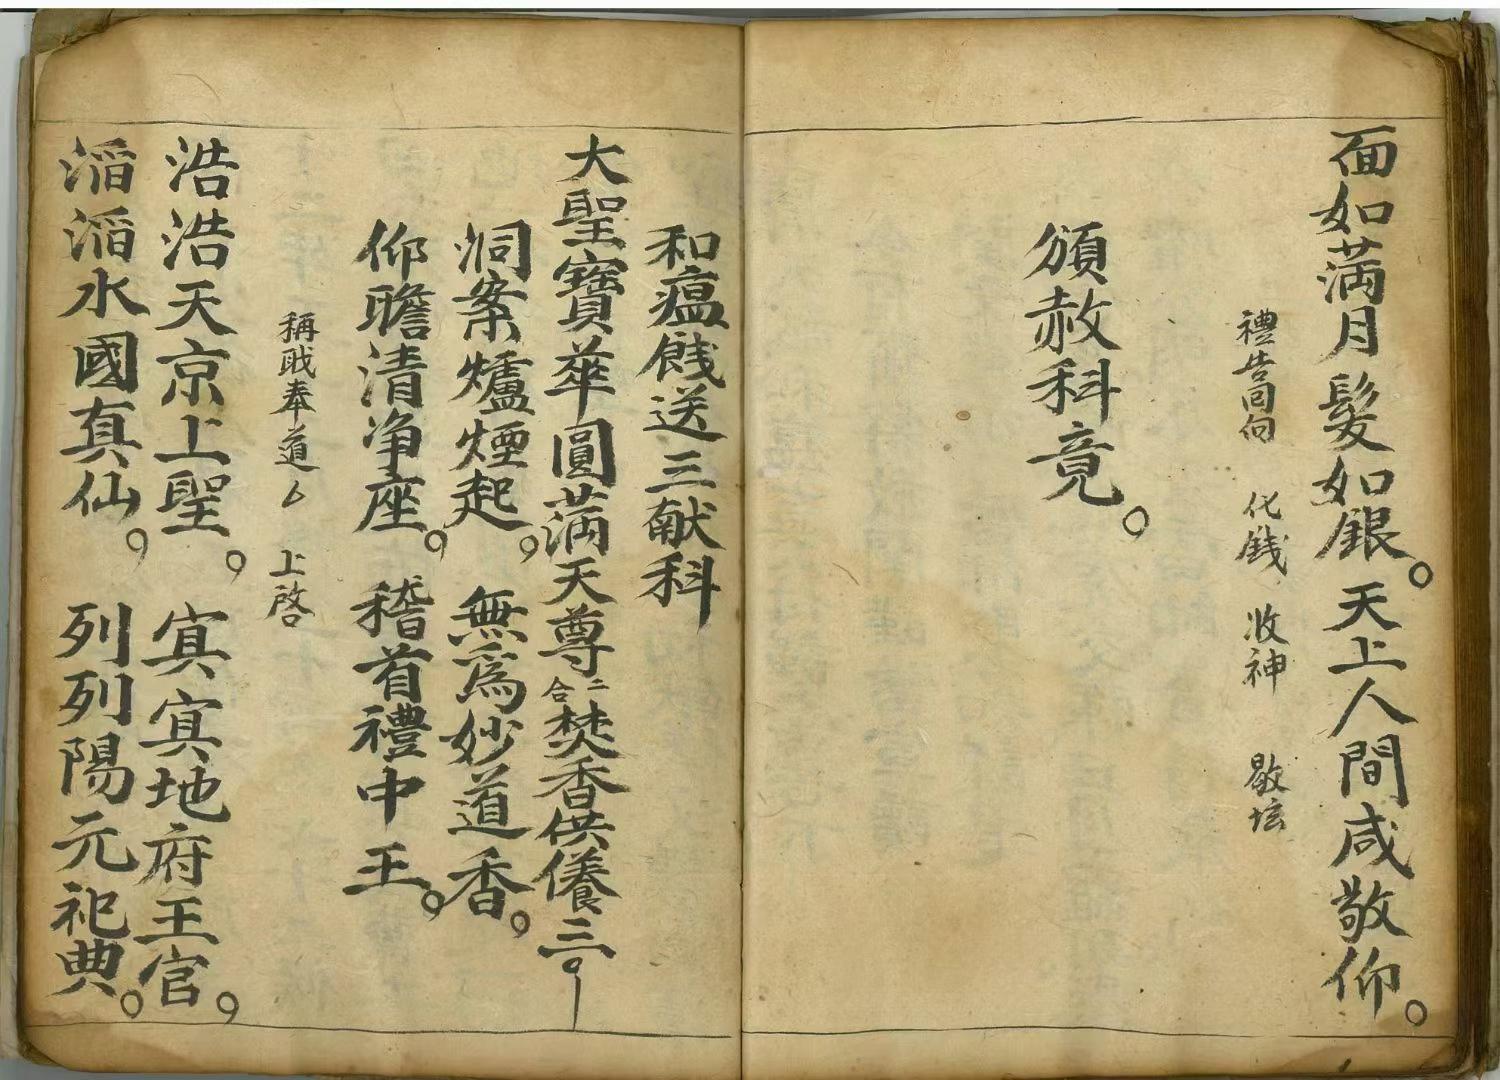 面如滿月髮如銀。天上人間咸敬仰。
禮告回向　化錢　收神　歇坛
頒赦科竟。
和瘟餞送三献科
大聖寶華圓滿天尊二合焚香供養三
洞案爐煙起。無爲妙道香。
仰瞻清净座。稽首禮中王。
稱戝奉道　上啓
浩浩天京上聖。寘寘地府王官。
滔滔水國真仙。列列陽元祀典。